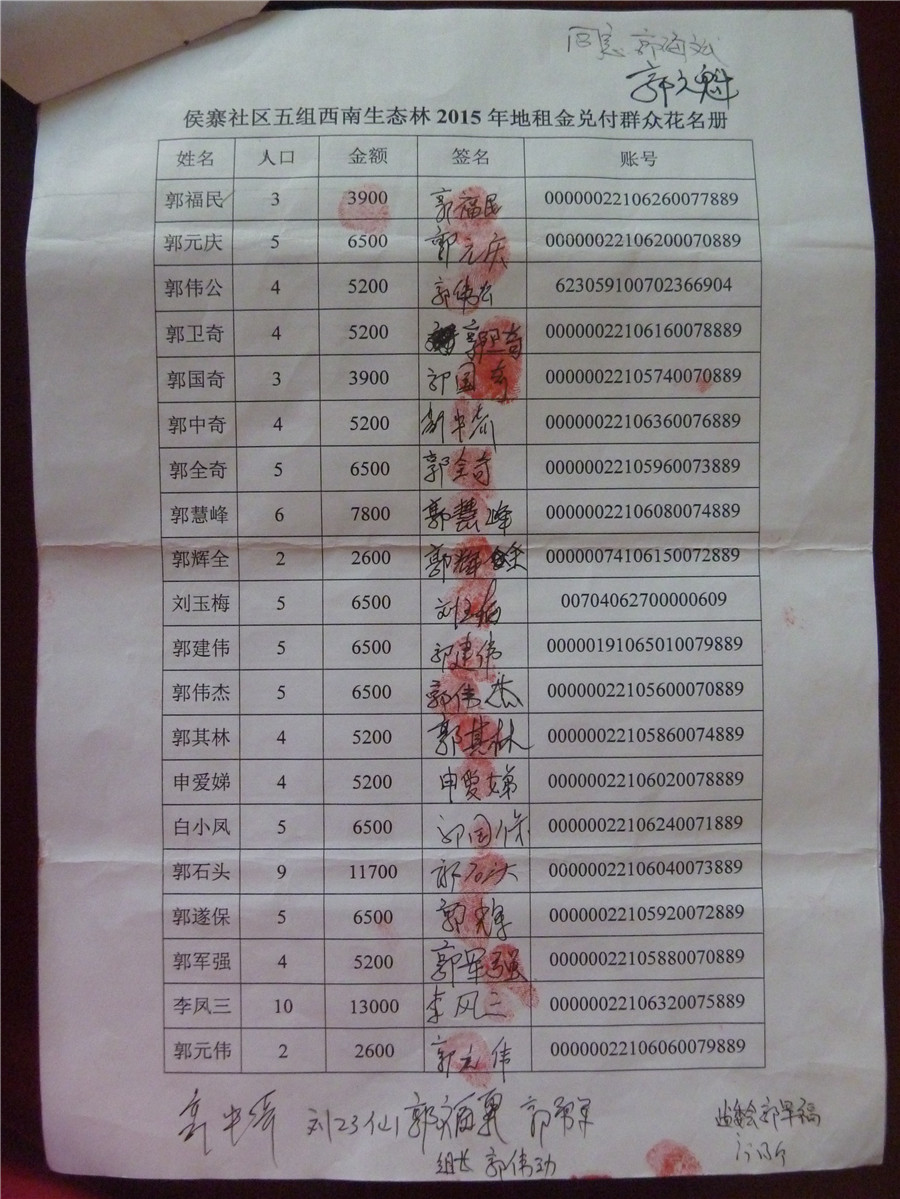 同意 郭海斌
郭文魁
侯寨社区五组西南生态林 2015 年地租金兑付群众花名册
姓名 人口 金额 签名 账号
郭福民 3 3900 郭福民 00000022106260077889
郭元庆 5 6500 郭元庆 00000022106200070889
郭伟公 4 5200 郭伟公 623059100702366904
郭卫奇 4 5200 郭卫奇 00000022106160078889
郭国奇 3 3900 郭国奇 00000022105740070889
郭中奇 4 5200 郭中奇 00000022106360076889
郭全奇 5 6500 郭全奇 00000022105960073889
郭慧峰 6 7800 郭慧峰 00000022106080074889
郭辉全 2 2600 郭辉全 00000074106150072889
刘玉梅 5 6500 刘玉梅 00704062700000609
郭建伟 5 6500 郭建伟 00000191065010079889
郭伟杰 5 6500 郭伟杰 00000022105600070889
郭其林 4 5200 郭其林 00000022105860074889
申爱娣 4 5200 申爱娣 00000022106020078889
白小凤 5 6500 郭国保 00000022106240071889
郭石头 9 11700 郭石头 00000022106040073889
郭遂保 5 6500 郭辉 00000022105920072889
郭军强 4 5200 郭军强 00000022105880070889
李凤三 10 13000 李凤三 00000022106320075889
郭元伟 2 2600 郭元伟 00000022106060079889
郭
组长 郭伟功